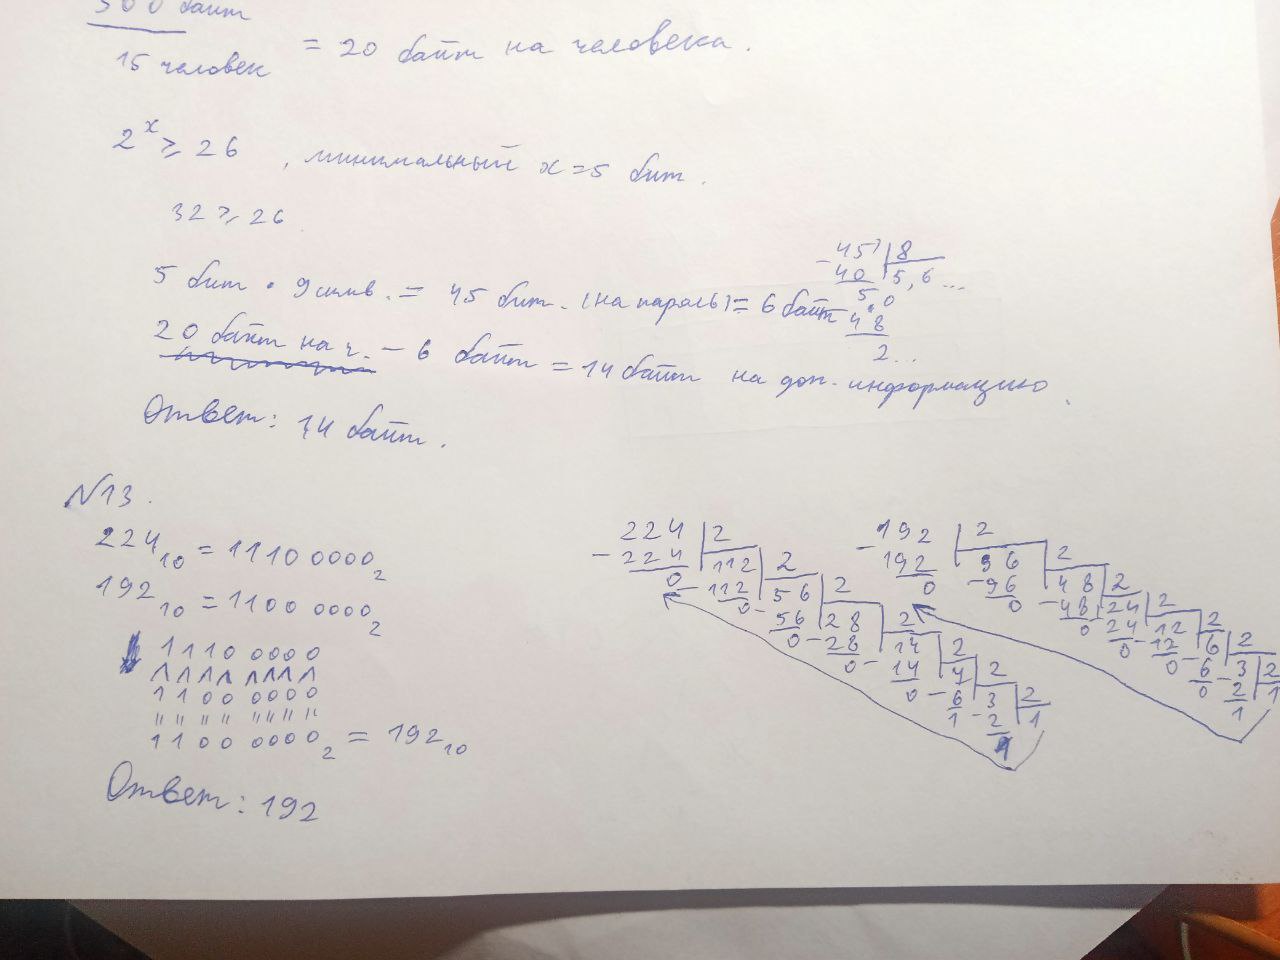 300 байт
15 человек = 20 байт на человека.
2^x ≥ 26, минимальный x = 5 бит.
32 ≥ 26
5 бит · 9 симв. = 45 бит. (на пароль) = 6 байт
45 | 8
40 5,6...
5,0
48
2...
20 байт на ч. – 6 байт = 14 байт на доп. информацию.
Ответ: 14 байт.
N13.
224₁₀ = 1110 0000₂
192₁₀ = 1100 0000₂
1110 0000
ʌʌʌʌ ʌʌʌʌ
1100 0000
" " " " " " " "
1100 0000₂ = 192₁₀
Ответ: 192
224 | 2
– 224 112 | 2
0 – 112 56 | 2
0 – 56 28 | 2
0 – 28 14 | 2
0 – 14 7 | 2
0 – 6 3 | 2
1 – 2 1
1
192 | 2
– 192 96 | 2
0 – 96 48 | 2
0 – 48 24 | 2
0 – 24 12 | 2
0 – 12 6 | 2
0 – 6 3 | 2
0 – 2 1
1